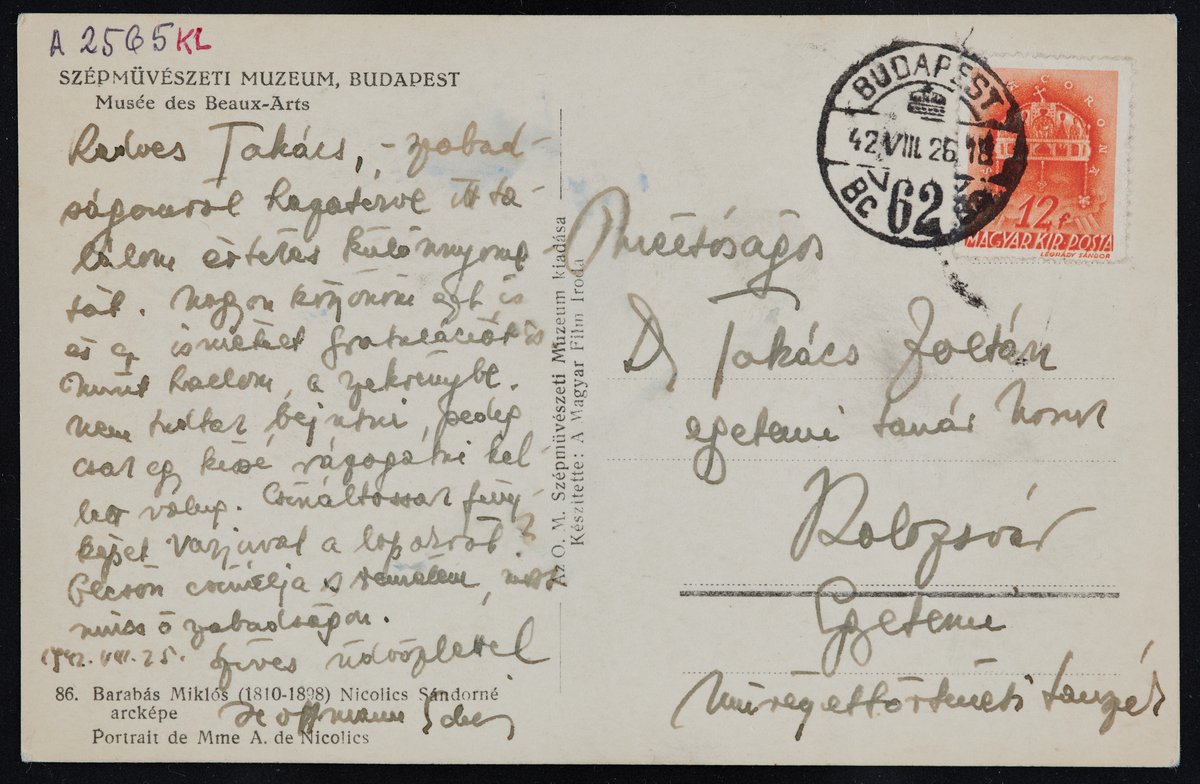 A 2565 KL
SZÉPMŰVÉSZETI MUZEUM, BUDAPEST
Musée des Beaux-Arts
Kedves Takács, – szabad-
ságomról hazatérve itt ta-
lálom értékes különnyoma-
tát. Nagyon köszönöm ezt is
és ismételt gratulációt is
mint hallom a szekrénybe
nem tudtak bejutni, pedig
csak egy kissé rázogatni kel-
lett volna. Csináltassak fény-
képet Varjúval a
csinálja is remélem, most
nincs ő szabadságon.
1942. VIII. 25. Szíves üdvözlettel
Hoffmann Edit
86. Barabás Miklós (1810-1898) Nicolics Sándorné
arcképe
Portrait de Mme A. de Nicolics
Az O. M. Szépművészeti Múzeum kiadása
Készítette: A Magyar Film Iroda
BUDAPEST
42 VIII. 26. 18
62
MAGYAR KIR. POSTA
12 f
LÉGRÁDY SÁNDOR
Méltóságos
Dr Takács Zoltán
egetemi tanár Úrnak
Kolozsvár
Egyetemi
Művészettörténeti tanszék